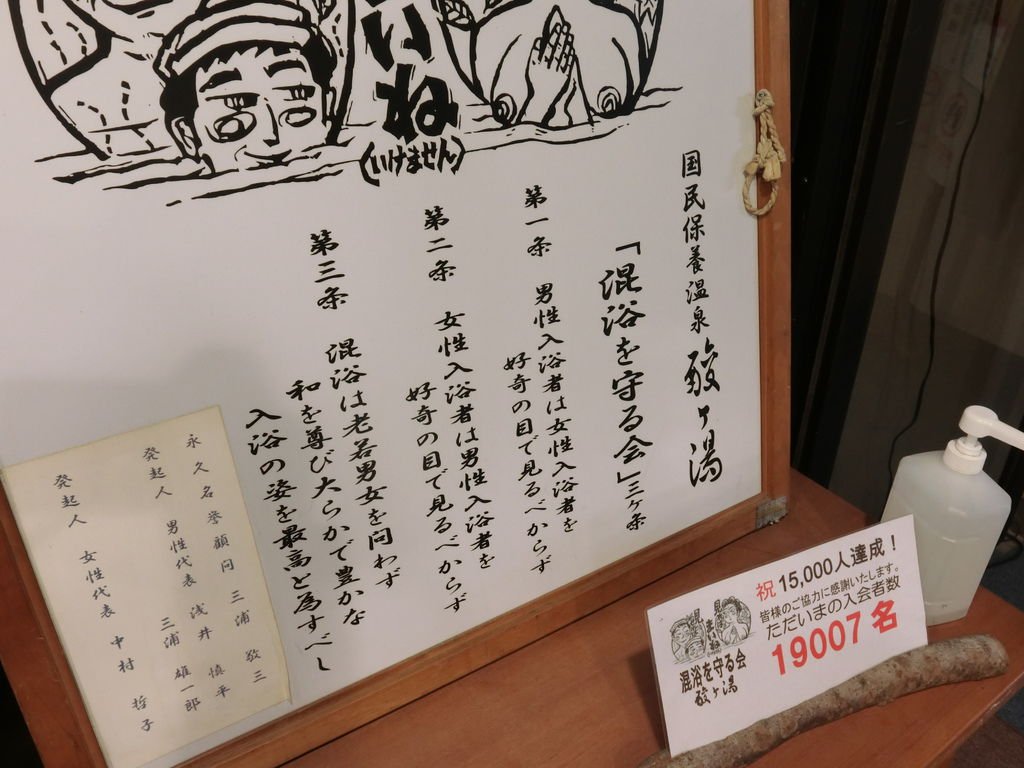 いね
(いけません)
国民保養温泉 酸ヶ湯
「混浴を守る会」三ヶ条
第一条 男性入浴者は女性入浴者を
好奇の目で見るべからず
第二条 女性入浴者は男性入浴者を
好奇の目で見るべからず
第三条 混浴は老若男女を問わず
和を尊び大らかで豊かな
入浴の姿を最高と為すべし
永久名誉顧問 三浦 敬三
浅井 慎平
発起人 男性代表 三浦 雄一郎
発起人 女性代表 中村 哲子
祝 15,000人達成!
皆様のご協力に感謝いたします。
ただいまの入会者数
19007 名
混浴を守る会
酸ヶ湯